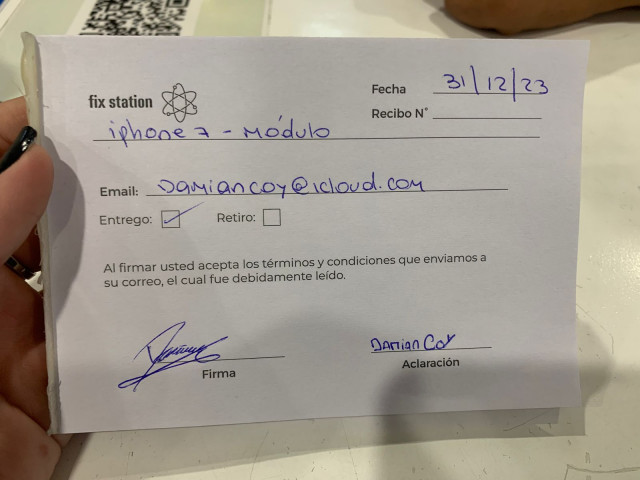 fix station
Fecha 31/12/23
Recibo N°
iphone 7 - Módulo
Email: Damiancoy@icloud.com
Entrego: Retiro:
Al firmar usted acepta los términos y condiciones que enviamos a
su correo, el cual fue debidamente leído.
Damian Coy
Firma Aclaración